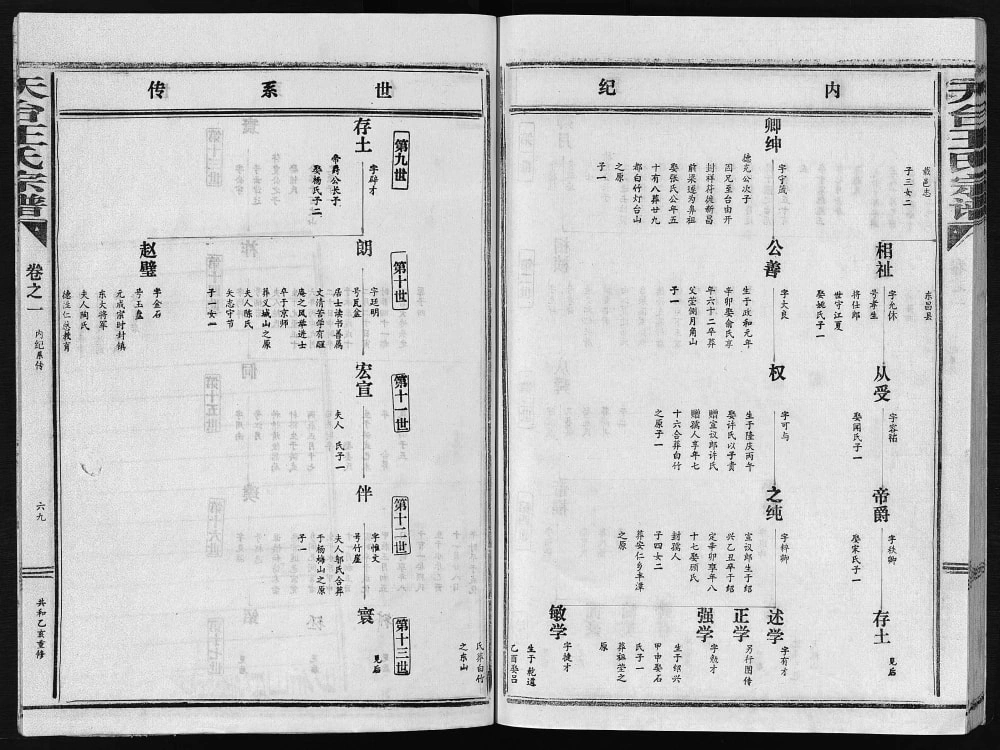 内纪
载邑志
子三女二
东昌县
相祉
字允休
号孝生
将仕郎
世守江夏
娶姚氏子一
从受
字容祐
娶闻氏子一
帝爵
字秩卿
娶宋氏子一
存土
见后
卿绅
字宇茂
德充公次子
因兄至台由开
封祥符徙新昌
前梁遂为鼻祖
娶张氏公年五
十有八葬廿九
都白竹灯台山
之原
子一
公善
字大良
生于政和元年
辛卯娶俞氏享
年六十二卒葬
父茔侧月角山
子一
权
字可与
生于隆庆丙午
娶许氏以子贵
赠宣议郎许氏
赠孺人享年七
十六合葬白竹
之原子一
之纯
字粹卿
宣议郎生于绍
兴乙丑卒于绍
定辛卯享年八
十七娶顾氏
封孺人
子四女二
葬安仁乡丰潭
之原
述学
字有才
正学
另行图传
强学
字勉才
生于绍兴
甲申娶石
氏子一
葬祖茔之
原
敏学
字捷才
生于乾道
乙酉娶吕
氏葬白竹
之东山
世系传
第九世
存土
字辟才
帝爵公长子
娶杨氏子二
第十世
朗
字廷明
号瓦盆
居士读书善属
文清苦学有颜
庵之风举进士
卒于京师
葬义城山之原
夫人陈氏
矢志守节
子一女一
赵璧
字金石
号玉盘
元成宗时封镇
东大将军
夫人陶氏
第十一世
宏宣
夫人 氏子一
第十二世
伴
字惟文
号竹崖
夫人邬氏合葬
于杨梅山之原
子一
第十三世
寰
见后
天台王氏宗谱
卷之一
内纪系传
六九
共和乙亥重修